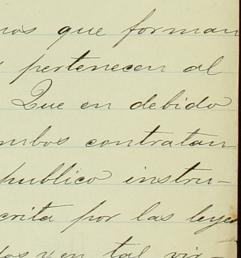 que forman
pertenecen al
Que en debido
ambos contratan
publico instru-
crita por las leyes
en tal vir-